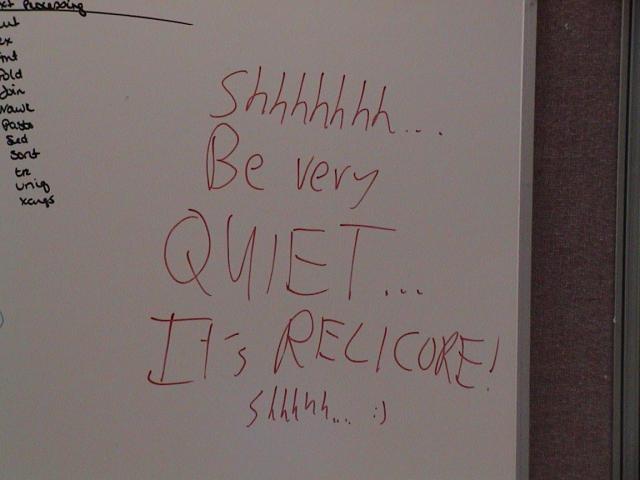 Processing
fmt
fold
join
nawk
paste
sed
sort
tr
uniq
xargs
Shhhhhhh...
Be very
QUIET...
It's RELICORE!
Shhhhh... :)